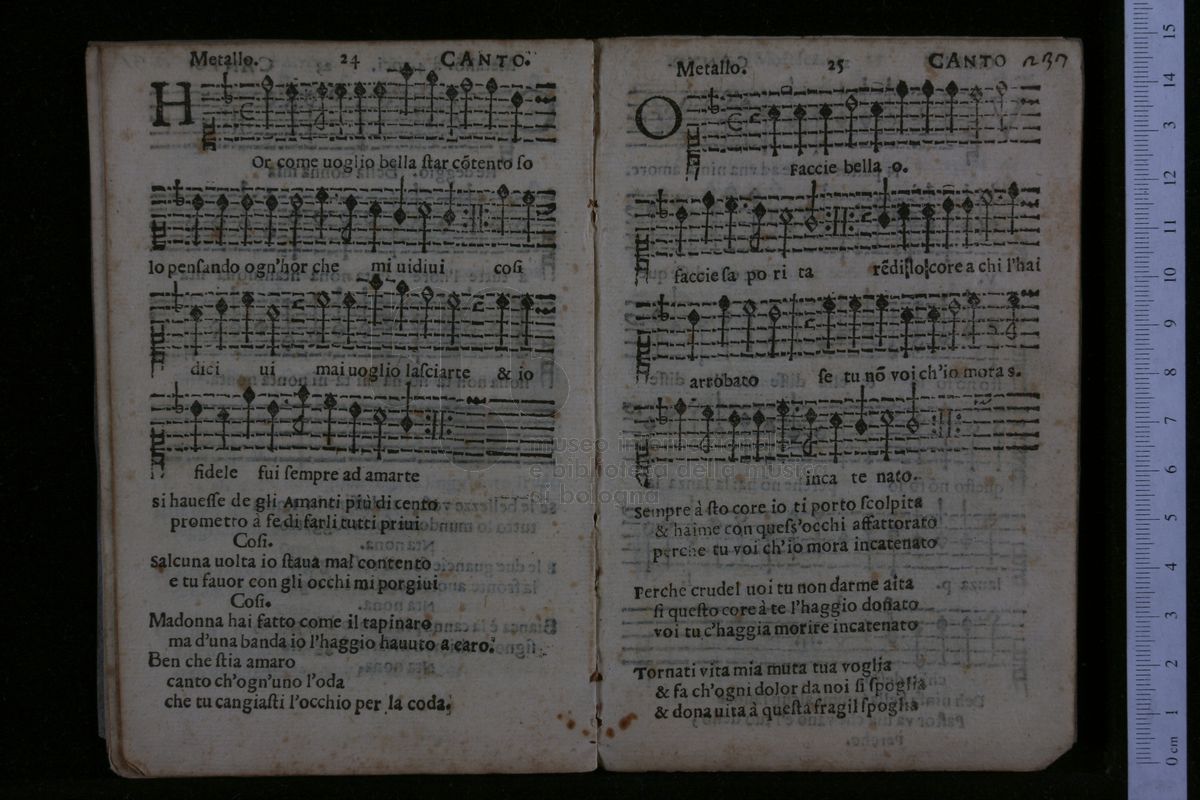 Metallo. 24 CANTO.
H
Or come uoglio bella star cōtento so
lo pensando ogn'hor che mi uidiui cosi
dici ui mai uoglio lasciarte & io
fidele fui sempre ad amarte
si hauesse de gli Amanti più di cento
prometto à fe di farli tutti priui
Cosi.
salcuna uolta io staua mal contento
e tu fauor con gli occhi mi porgiui
Cosi.
Madonna hai fatto come il tapinaro
ma d'una banda io l'haggio hauuto a caro.
Ben che stia amaro
canto ch'ogn'uno l'oda
che tu cangiasti l'occhio per la coda.
Metallo. 25 CANTO 237
O
Faccie bella o.
faccie sa po ri ta rēdi lo core a chi l'hai
arrobato se tu nō voi ch'io mora s.
inca te nato.
sempre à sto core io ti porto scolpita
& haime con quess'occhi affattorato
perche tu voi ch'io mora incatenato
Perche crudel uoi tu non darme aita
si questo core à te l'haggio donato
voi tu c'haggia morire incatenato
Tornati vita mia muta tua voglia
& fa ch'ogni dolor da noi si spoglia
& dona uita à questa fragil spoglia
museo internazionale
e biblioteca della musica
di bologna
0 cm 1 2 3 4 5 6 7 8 9 10 11 12 13 14 15